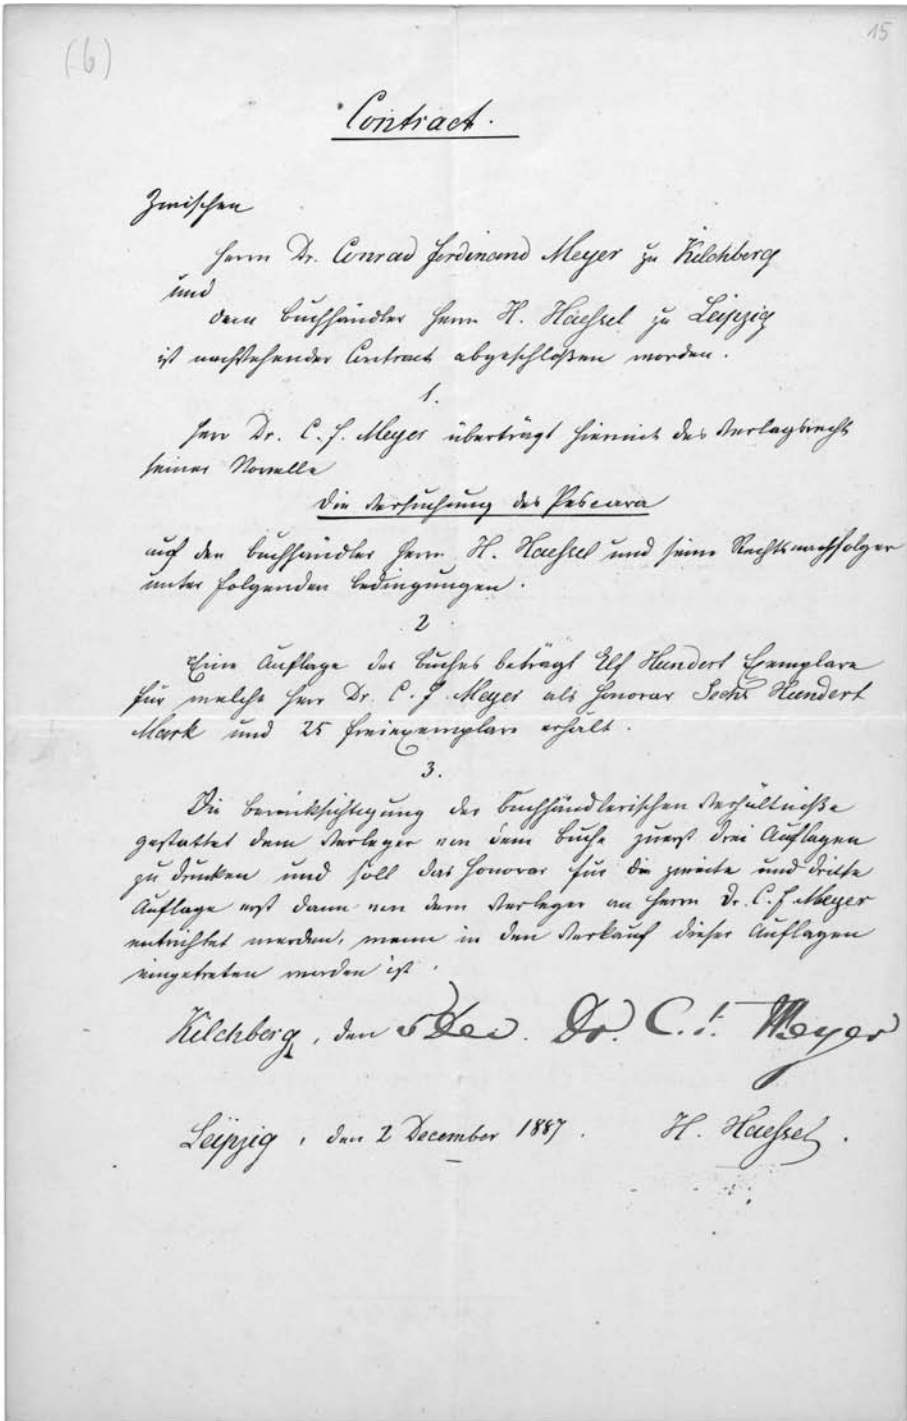 (6)
15
Contract.
Zwischen
Herrn Dr. Conrad Ferdinand Meyer zu Kilchberg
und
dem Buchhändler Herrn H. Haessel zu Leipzig
ist nachstehender Contract abgeschloßen worden.
1.
Herr Dr. C. F. Meyer überträgt hiermit das Verlagsrecht
seiner Novelle
Die Versuchung des Pescara
auf den Buchhändler Herrn H. Haessel und seine Rechtsnachfolger
unter folgenden Bedingungen.
2
Eine Auflage des Buches beträgt Elf Hundert Exemplare
für welche Herr Dr. C. F. Meyer als Honorar Sechs Hundert
Mark und 25 Freiexemplare erhält.
3.
Die Berücksichtigung der buchhändlerischen Verhältniße
gestattet dem Verleger von dem Buche zuerst drei Auflagen
zu drucken und soll das Honorar für die zweite und dritte
Auflage erst dann von dem Verleger an Herrn Dr. C. F. Meyer
entrichtet werden, wenn in den Verkauf dieser Auflagen
eingetreten worden ist.
Kilchberg, den 5 Dec. Dr. C. F. Meyer
Leipzig, den 2 December 1887. H. Haessel.